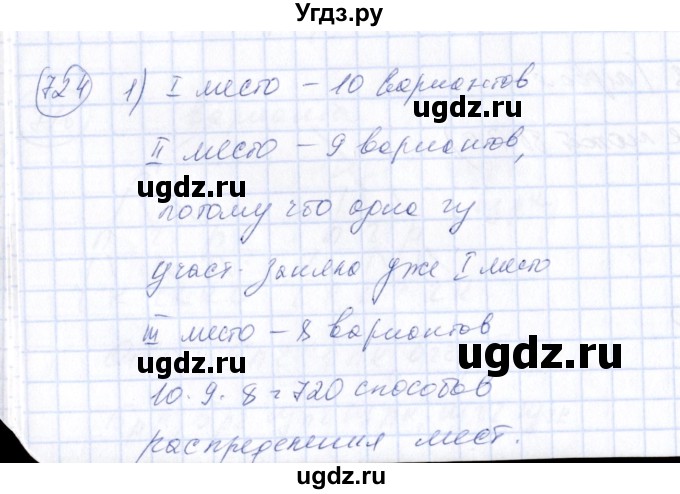 Угдз.ру
724 1) I место – 10 вариантов
ugdz.ru
II место – 9 вариантов,
ugdz.ru
потому что одна из
участ. заняла уже I место
III место – 8 вариантов
ugdz.ru
ugdz.ru
10 · 9 · 8 = 720 способов
распределения мест.
ugdz.ru